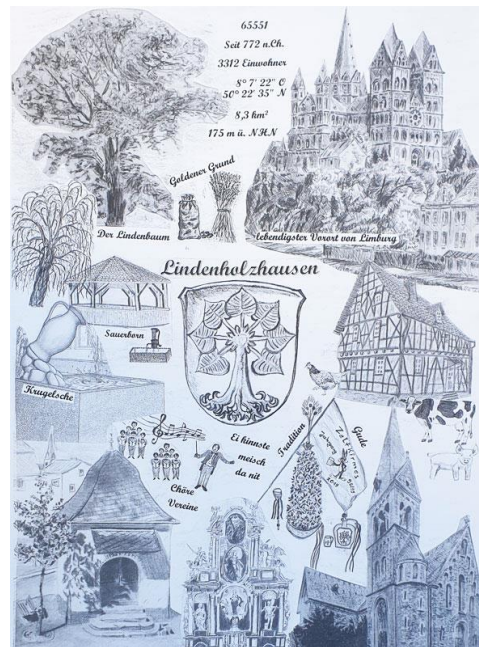 65551
Seit 772 n.Ch.
3312 Einwohner
8° 7' 22" O
50° 22' 35" N
8,3 km²
175 m ü. NHN
Goldener Grund
Der Lindenbaum
lebendigster Vorort von Limburg
Lindenholzhausen
Sauerborn
Krugelsche
Ei kinnste
meisch
da nit
Chöre
Vereine
Tradition
Gude